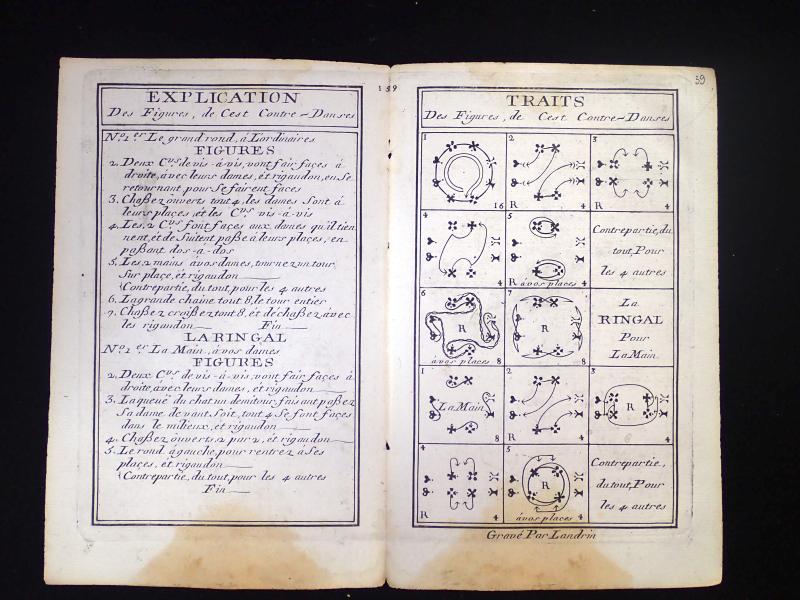 EXPLICATION
Des Figures, de Cest Contre-Danses
No. 1er Le grand rond, á Lordinaires
FIGURES
2. Deux Cvs de vis-á-vis, vont fair façes á
droite, ávec leurs dames, ét rigaudon, en se
retournant pour se fairent faces
3. Chaßez óuverts tout 4, les dames sont á
leurs plaçes, ét les Cvs vis-á-vis
4. Les, 2 Cvs font façes aux dames qu'il tien
nent, ét de suitent paße á leurs plaçes, en
paßant dos-a-dos
5. Les 2 mains ávos dames, tournez un tour,
Sur plaçe, ét rigaudon
Contrepartie, du tout, pour les 4 autres
6. La grande chaine tout 8, le tour entier
7. Chaßez croißez tout 8, ét déchaßez ávec
les rigaudon Fin
LA RINGAL
No. 1er La Main, á vos dames
FIGURES
2. Deux Cvs de vis-á-vis, vont fair façes á
droite, ávec leurs dames, ét rigaudon
3. La queuë du chat un demitour, faisant paßez
Sa dame devant Soit, tout 4 Se font façes
dans le milieux, ét rigaudon
4. Chaßez óuverts 2 par 2, ét rigaudon
5. Le rond ágauche, pour rentrez á Ses
plaçes, ét rigaudon
Contrepartie, du tout, pour les 4 autres
Fin
159
39
TRAITS
Des Figures, de Cest Contre-Danses
1
16
2
R 4
3
R 4
4
4
5
R ávos places 4
Contrepartie, du
tout, Pour
les 4 autres
6
R
ávos places 8
7
R
8
La
RINGAL
Pour
La Main
1
La Main
8
2
R 4
3
R
4
4
R 4
5
R
ávos places 4
Contrepartie,
du tout, Pour
les 4 autres
Gravé Par Landrin